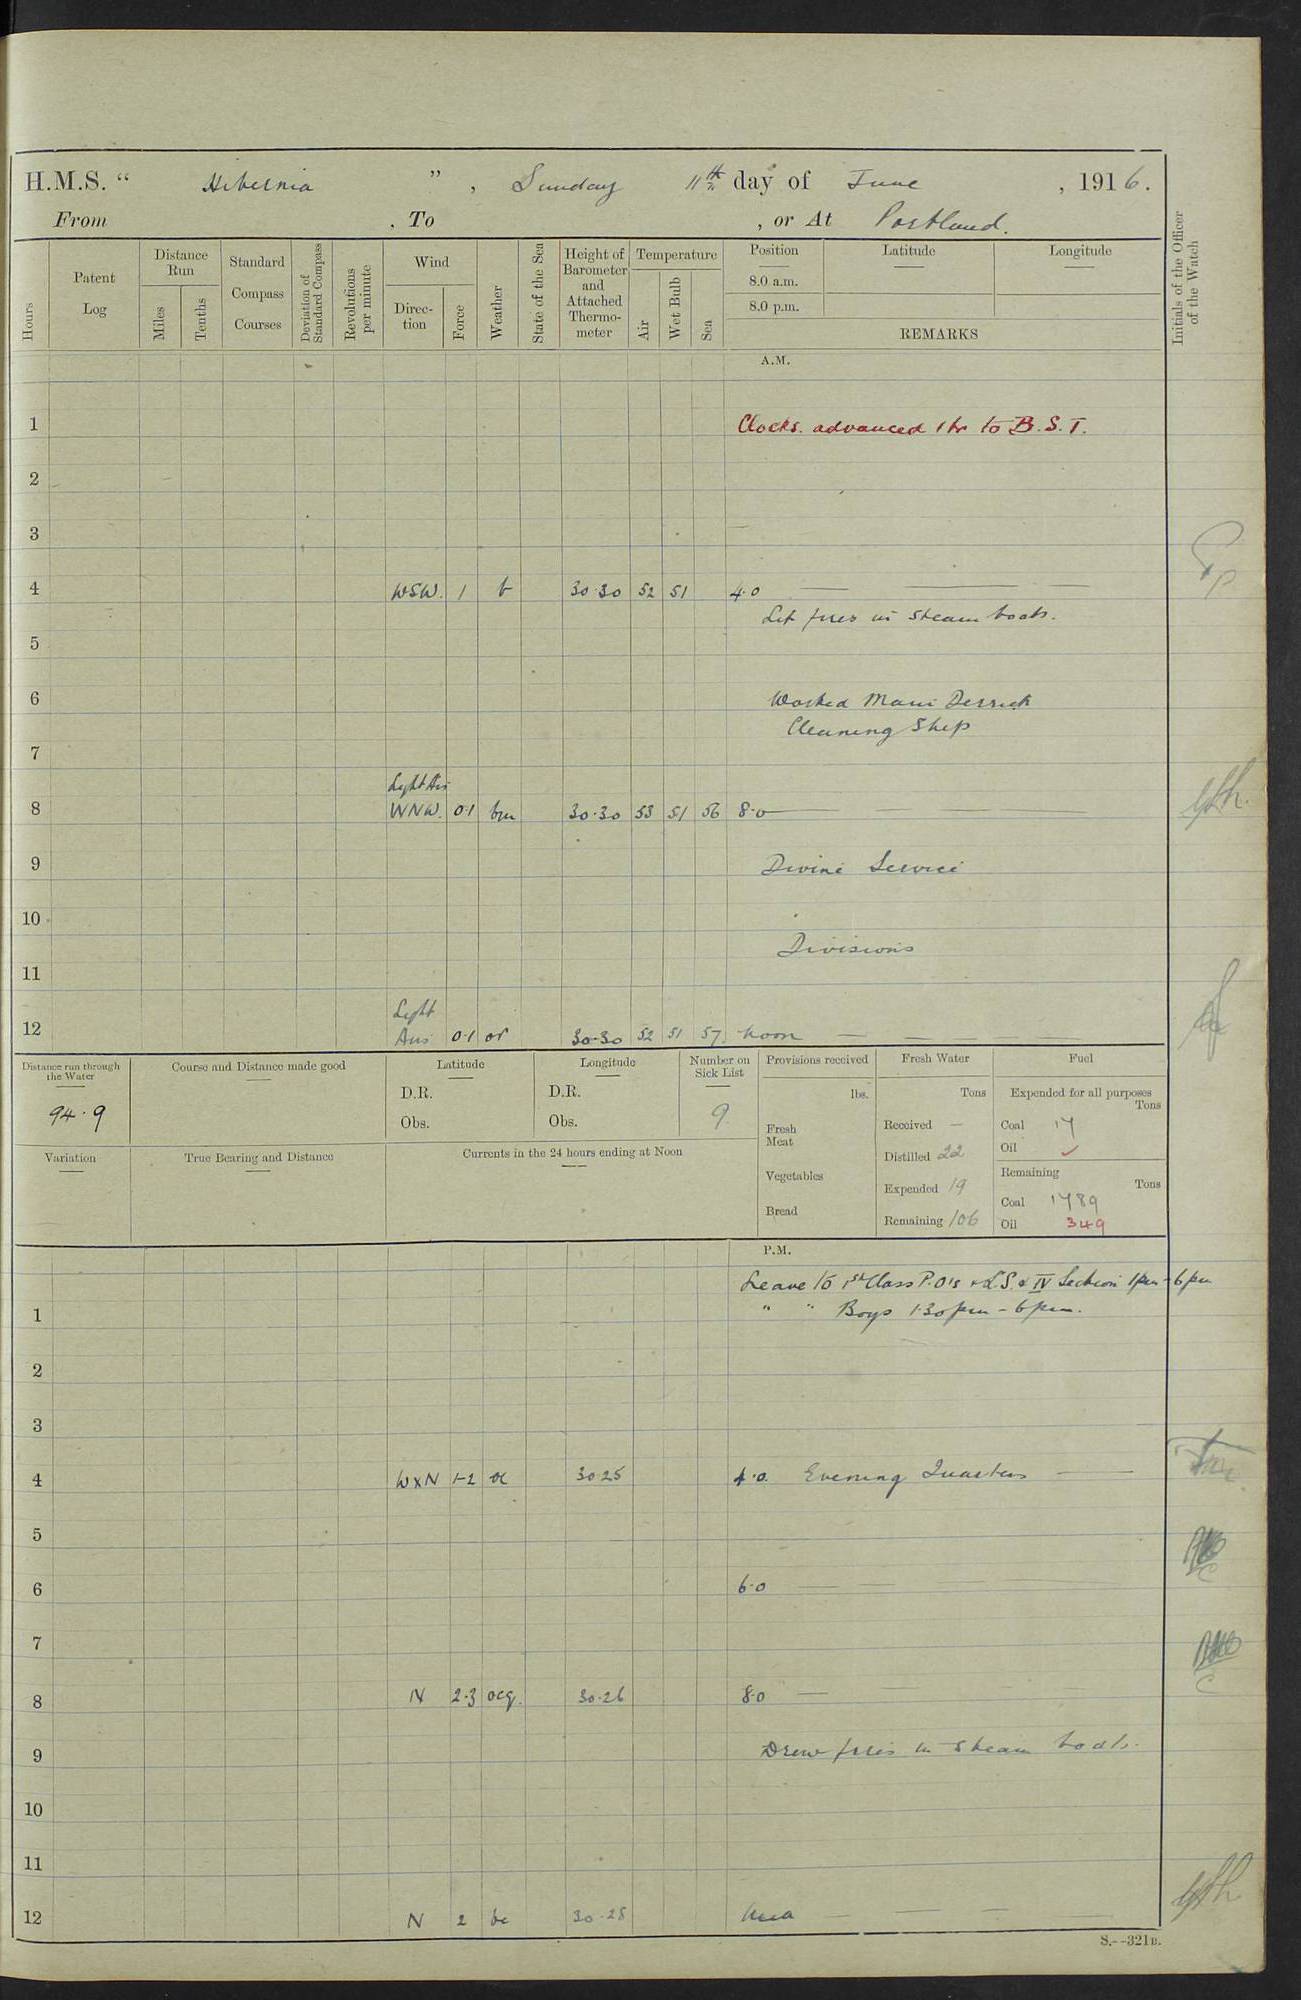 H.M.S. “ Hibernia ” , Sunday 11th day of June , 1916.
From , To , or At Portland.
Hours
Patent Log
Distance Run
Miles
Tenths
Standard Compass Courses
Deviation of Standard Compass
Revolutions per minute
Wind
Direc-tion
Force
Weather
State of the Sea
Height of Barometer and Attached Thermo-meter
Temperature
Air
Wet Bulb
Sea
Position
8.0 a.m.
8.0 p.m.
Latitude
Longitude
REMARKS
Initials of the Officer of the Watch
A.M.
1 Clocks. advanced 1 hr to B.S.T.
2
3
4 WSW. 1 b 30.30 52 51 4.0
Lit fires in steam boats.
5
6 Worked Main Derrick
Cleaning Ship
7
Light Air
8 WNW. 0.1 bm 30.30 53 51 56 8.0
9 Divine Service
10
Divisions
11
Light
12 Airs 0.1 or 30.30 52 51 57 Noon
Distance run through the Water
94.9
Course and Distance made good
Latitude
D.R.
Obs.
Longitude
D.R.
Obs.
Number on Sick List
9
Provisions received
lbs.
Fresh Meat
Vegetables
Bread
Fresh Water
Tons
Received —
Distilled 22
Expended 19
Remaining 106
Fuel
Expended for all purposes
Tons
Coal 17
Oil ✓
Remaining
Tons
Coal 1789
Oil 349
Variation
True Bearing and Distance
Currents in the 24 hours ending at Noon
P.M.
Leave to 1st Class P.O's & L.S. & IV Section 1pm - 6pm
1 " " Boys 1.30pm - 6pm.
2
3
4 WxN 1-2 oc 30.25 4.0. Evening Quarters
5
6 6.0
7
8 N 2.3 ocq. 30.26 8.0
9 Drew fires in steam boats.
10
11
12 N 2 bc 30.28
S.--321B.